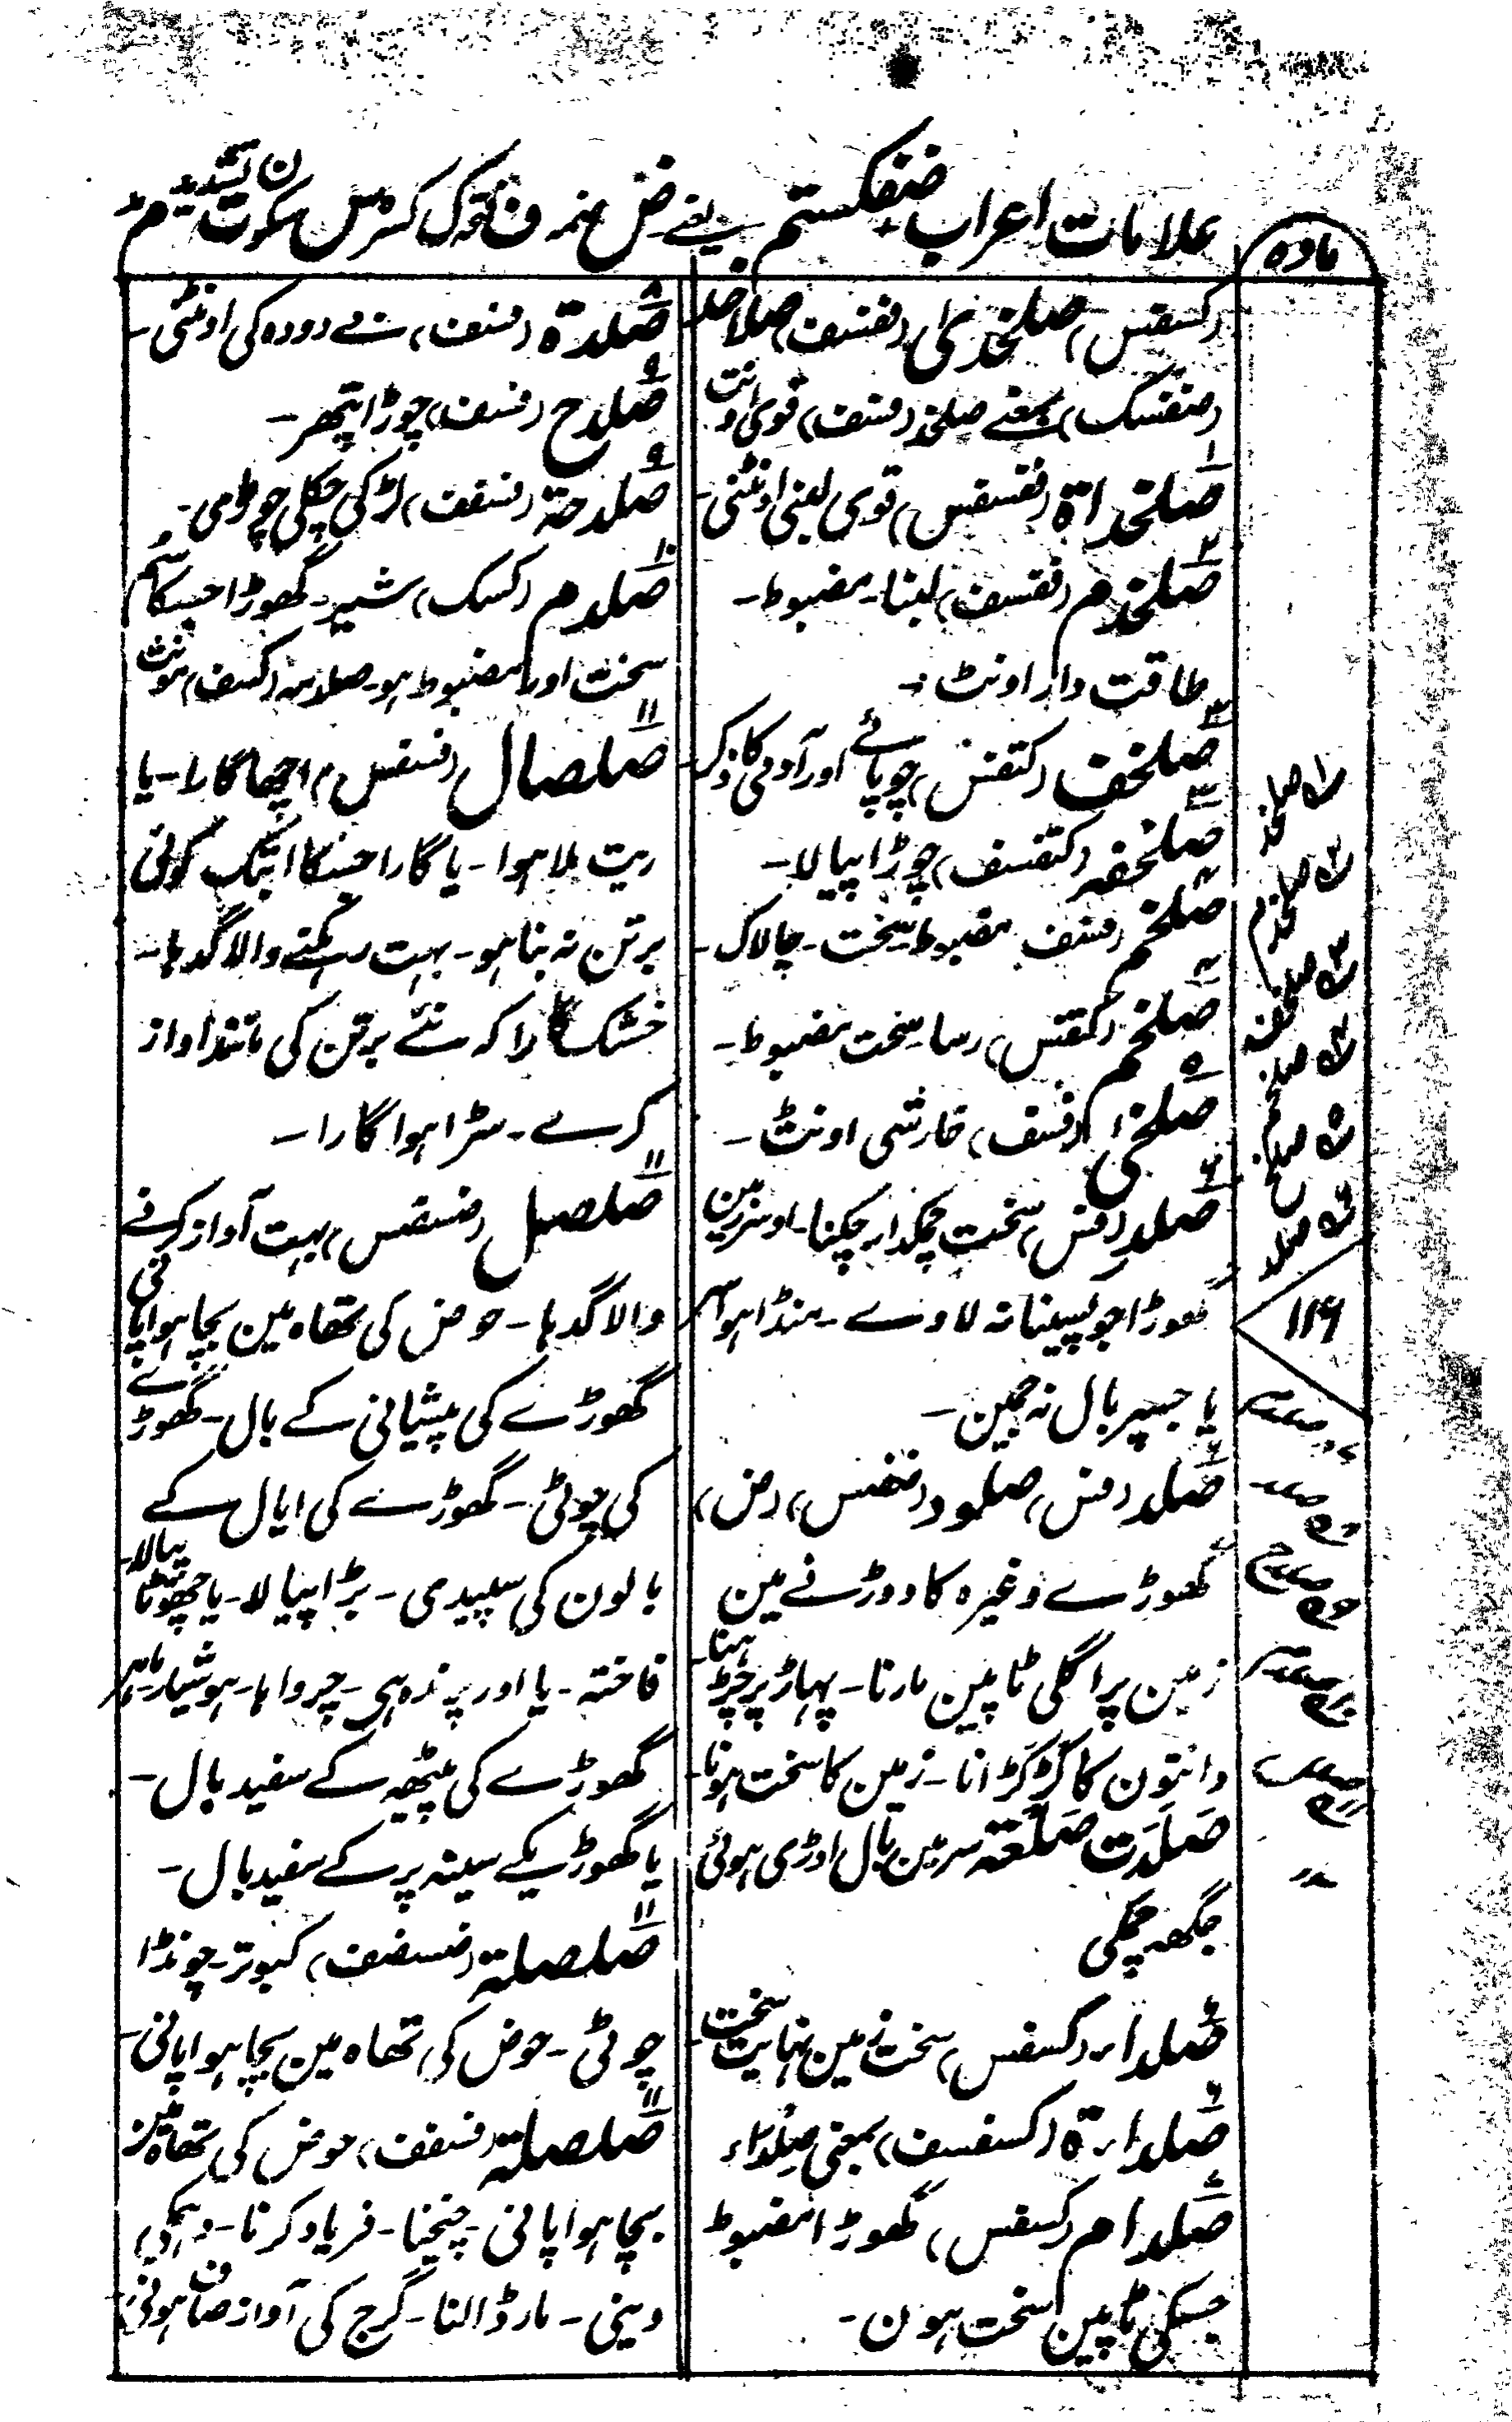 علامات اعراب ضفکستم یعنے ض ضمہ ف فتحہ ک کسرہ س سکوت ت تشدید م مد
مادہ
(کسفس) صلخدی (فسف) صلاخد
(ضفسک) بمعنے صلخد (فسف) قوی اونٹ
صلخداۃ (فسفس) قوی لمبی اونٹنی۔
صلخدم (فسف) لمبا۔ مضبوط۔
طاقت دار اونٹ۔
صلخف چوپائے اور آدمی کا ذکر
صلخفہ چوڑا پیالا۔
صلخم (فسف) مضبوط سخت۔ چالاک۔
صلخم رسا سخت مضبوط۔
صلخی (فسف) خارشی اونٹ۔
صلد (فس) سخت چمکدار چکنا۔ اوسر زمین
گھوڑا جو پسینا نہ لاوے۔ منڈا ہوا سر
یا جسپر بال نہ جمین۔
صلد (فس) صلود (ض)
گھوڑے وغیرہ کا دوڑنے مین
زمین پر اگلی ٹاپین مارنا۔ پہاڑ پر چڑہنا
دانتون کا کڑکڑانا۔ زمین کا سخت ہونا۔
صَلَدَت صَلْعَتہ سر مین بال اوڑی ہوئی
جگھہ چمکی
صلداء (کسفس) سخت زمین نہایت سخت
صلداءۃ (کسفسف) بمعنی صِلْدَاء
صلدام (کسفس) گھوڑا مضبوط
جسکی ٹاپین سخت ہون۔
صلدۃ (فسف) بے دودہ کی اونٹنی۔
صلدح (فسف) چوڑا پتھر۔
صلدحۃ (فسفف) لڑکی چکلی چوڑی۔
صلدم (کسک) شیر۔ گھوڑا جسکا سم
سخت اور مضبوط ہو۔ صلدمہ (کسف) مونث
صلصال (فسفس) اچھا گارا۔ یا
ریت ملا ہوا۔ یا گارا جسکا ابتک کوئی
برتن نہ بنا ہو۔ بہت رینگنے والا گدہا۔
خشک گارا کہ نئے برتن کی مانند اواز
کرے۔ سڑا ہوا گارا۔
صلصل (ضسضس) بہت آواز کرنے
والا گدہا۔ حوض کی تھاہ مین بچا ہوا پانی
گھوڑے کی پیشانی کے بال۔ گھوڑے
کی چوٹی۔ گھوڑے کی ایال کے
بالون کی سپیدی۔ بڑا پیالا۔ یا چھوٹا پیالا
فاختہ۔ یا اور پرندہ ہی۔ چرواہا۔ ہوشیار ماہر
گھوڑے کی پیٹھہ کے سفید بال۔
یا گھوڑیکے سینہ پر کے سفید بال۔
صلصلۃ (ضسضف) کبوتر۔ چونڈا
چوٹی۔ حوض کی تھاہ مین بچا ہوا پانی۔
صلصلۃ (فسفف) حوض کی تھاہ مین
بچا ہوا پانی۔ چیخنا۔ فریاد کرنا۔ دہمکی
دینی۔ مار ڈالنا۔ گرج کی آواز صاف ہونی
۱ صلخد
۲ صلخدم
۳ صلخف
۴ صلخم
۵ صلخ
۶ صلد
۱۱۶